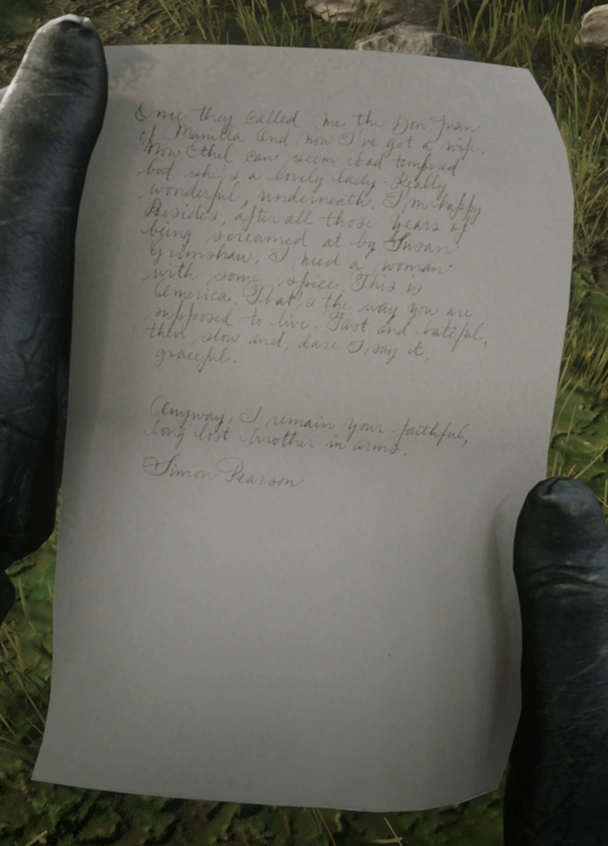 Once they called me the Don Juan
of Manilla and now I've got a wife.
Now Ethel can seem bad tempered
but she's a lovely lady. Really
wonderful, underneath. I'm happy.
Besides, after all those years of
being screamed at by Susan
Grimshaw, I need a woman
with some spice. This is
America. That's the way you are
supposed to live. Fast and hateful,
then slow and, dare I say it,
graceful.
Anyway, I remain your faithful,
long lost brother in arms.
Simon Pearson